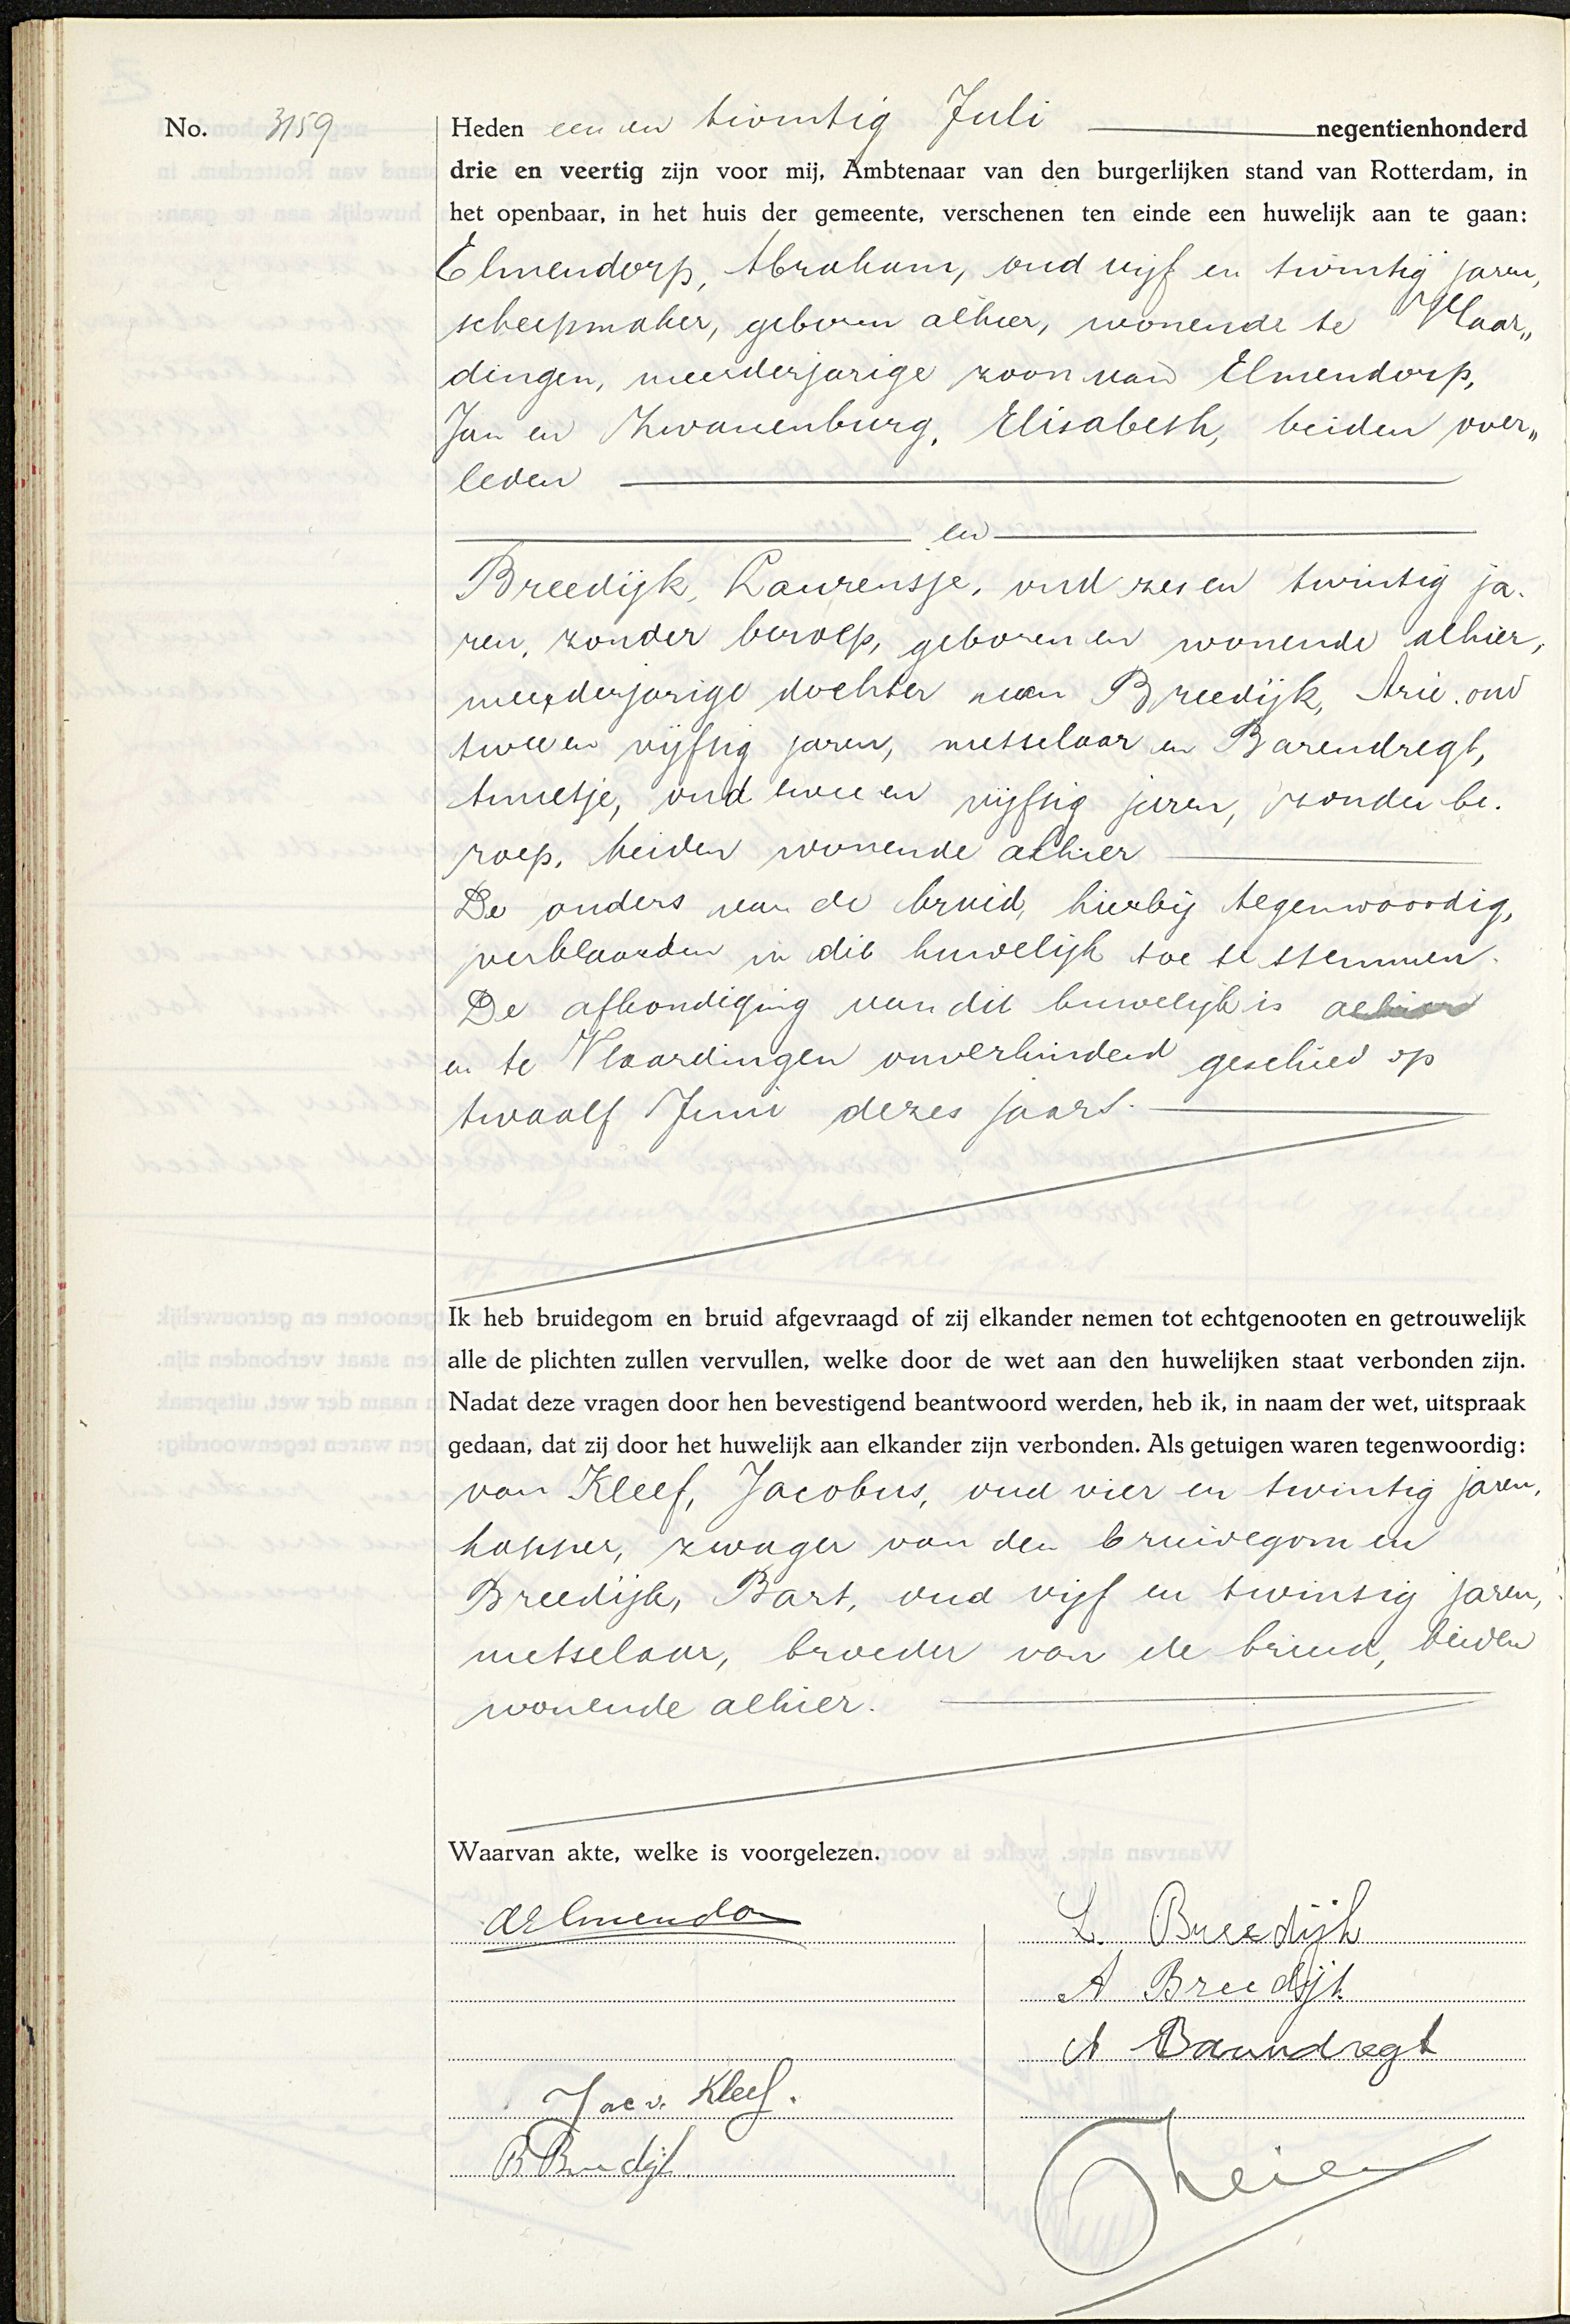 No. 3159
Heden een en twintig Juli negentienhonderd
drie en veertig zijn voor mij, Ambtenaar van den burgerlijken stand van Rotterdam, in
het openbaar, in het huis der gemeente, verschenen ten einde een huwelijk aan te gaan:
Elmendorp, Abraham, oud vijf en twintig jaren,
scheepmaker, geboren alhier, wonende te Vlaar„
dingen, meerderjarige zoon van Elmendorp,
Jan en Zwanenburg, Elisabeth, beiden over„
leden
en
Breedijk, Laurensje, oud zes en twintig ja.
ren, zonder beroep, geboren en wonende alhier,
meerderjarige dochter van Breedijk, Arie. oud
twee en vijftig jaren, metselaar en Barendregt,
Annetje, oud twee en vijftig jaren, zonder be.
roep, beiden wonende alhier
De ouders van de bruid, hierbij tegenwoordig,
verklaarden in dit huwelijk toe te stemmen.
De afkondiging van dit huwelijk is alhier
en te Vlaardingen onverhinderd geschied op
twaalf Juni dezes jaars.
Ik heb bruidegom en bruid afgevraagd of zij elkander nemen tot echtgenooten en getrouwelijk
alle de plichten zullen vervullen, welke door de wet aan den huwelijken staat verbonden zijn.
Nadat deze vragen door hen bevestigend beantwoord werden, heb ik, in naam der wet, uitspraak
gedaan, dat zij door het huwelijk aan elkander zijn verbonden. Als getuigen waren tegenwoordig:
van Kleef, Jacobus, oud vier en twintig jaren,
kapper, zwager van den bruidegom en
Breedijk, Bart, oud vijf en twintig jaren,
metselaar, broeder van de bruid, beiden
wonende alhier.
Waarvan akte, welke is voorgelezen.
AElmendorp
L. Breedijk
A Breedijk
A Barendregt
Jac v. Kleef.
B Breedijk